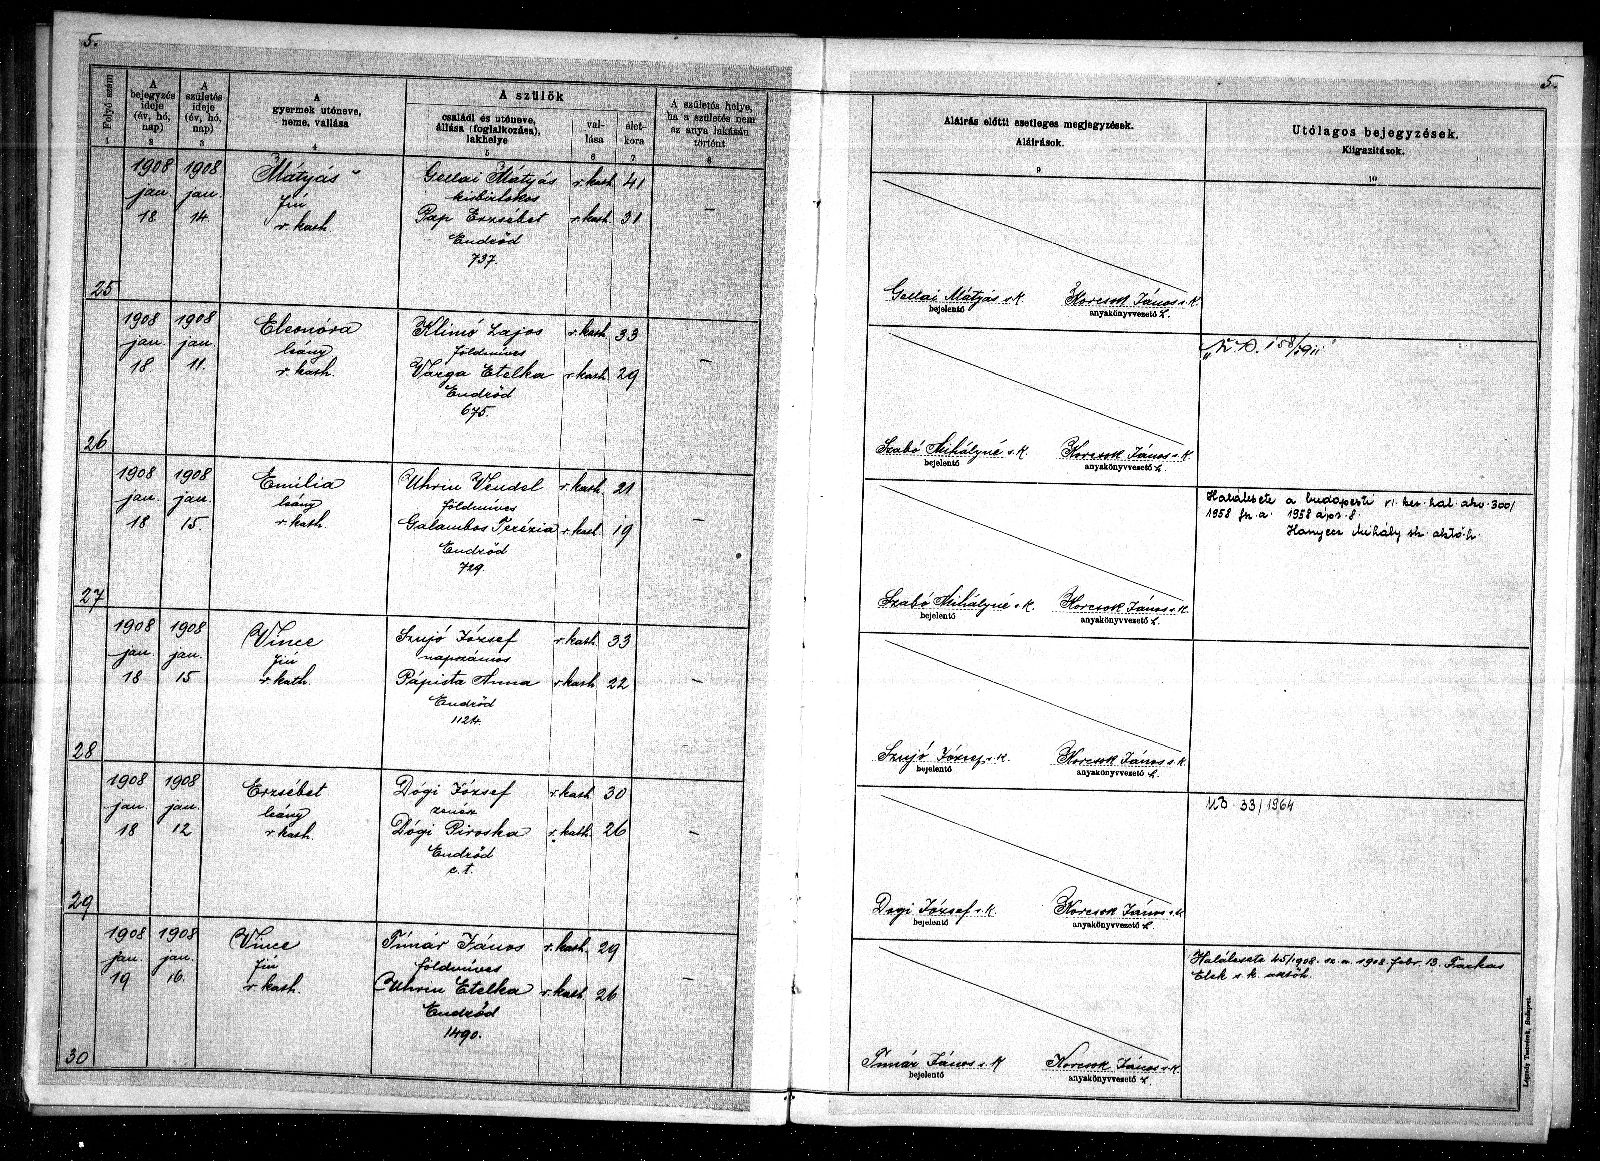 5.
5.
Folyó szám
A bejegyzés ideje (év, hó, nap)
A születés ideje (év, hó, nap)
A gyermek utóneve, neme, vallása
A szülők
családi és utóneve, állása (foglalkozása), lakhelye
vallása
életkora
A születés helye, ha a születés nem az anya lakásán történt
Aláírás előtti esetleges megjegyzések.
Aláírások.
Utólagos bejegyzések.
Kiigazítások.
1 2 3 4 5 6 7 8 9 10
25
1908 jan 18
1908 jan. 14
Mátyás
fiú
r. kath.
Gellai Mátyás r. kath. 41
kisbirtokos
Pap Erzsébet r. kath. 31
Endrőd
737.
–
Gellai Mátyás s.k.
bejelentő
Korcsok János s.k.
anyakönyvvezető h.
26
1908 jan 18
1908 jan. 11.
Eleonóra
leány
r. kath.
Klimó Lajos r. kath. 33
földmíves
Varga Etelka r. kath. 29
Endrőd
675.
–
Szabó Mihályné s.k.
bejelentő
Korcsok János s.k.
anyakönyvvezető h.
27
1908 jan. 18
1908 jan. 15.
Emilia
leány
r. kath.
Uhrin Vendel r. kath. 21
földmíves
Galambos Terézia r. kath. 19
Endrőd
729.
–
Szabó Mihályné s.k.
bejelentő
Korcsok János s.k.
anyakönyvvezető h.
Halálesete a budapesti VI. ker. hal. akv. 300/
1958 fsz. a. 1958 ápr. 8.
Mihály sk.
28
1908 jan. 18
1908 jan. 15
Vince
fiú
r. kath.
Szujó József r. kath. 33
napszámos
Pápista Anna r. kath. 22
Endrőd
1124.
–
Szujó József s.k.
bejelentő
Korcsok János s.k.
anyakönyvvezető h.
29
1908 jan. 18
1908 jan. 12
Erzsébet
leány
r. kath.
Dógi József r. kath. 30
zenész
Dógi Piroska r. kath. 26
Endrőd
c. t.
–
Dogi József s.k.
bejelentő
Korcsok János s.k.
anyakönyvvezető h.
33/1964
30
1908 jan. 19
1908 jan. 16.
Vince
fiú
r. kath.
Timár János r. kath. 29
földmíves
Uhrin Etelka r. kath. 26
Endrőd
1490.
–
Timár János s.k.
bejelentő
Korcsok János s.k.
anyakönyvvezető h.
Halálesete 45/1908. sz. a. 1908. febr. 13. Farkas
Elek s.k.